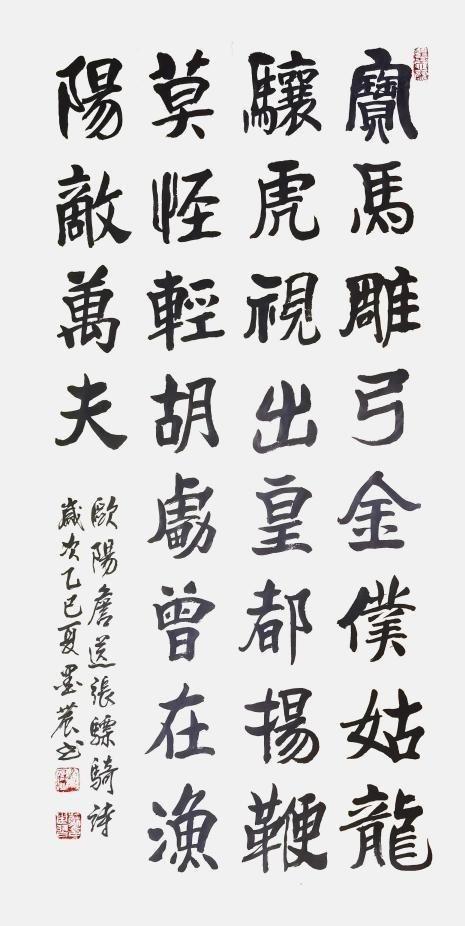 寶馬雕弓金僕姑龍
驤虎視出皇都揚鞭
莫怪輕胡虜曾在漁
陽敵萬夫
歐陽詹送張驃騎詩
歲次乙巳夏墨農書